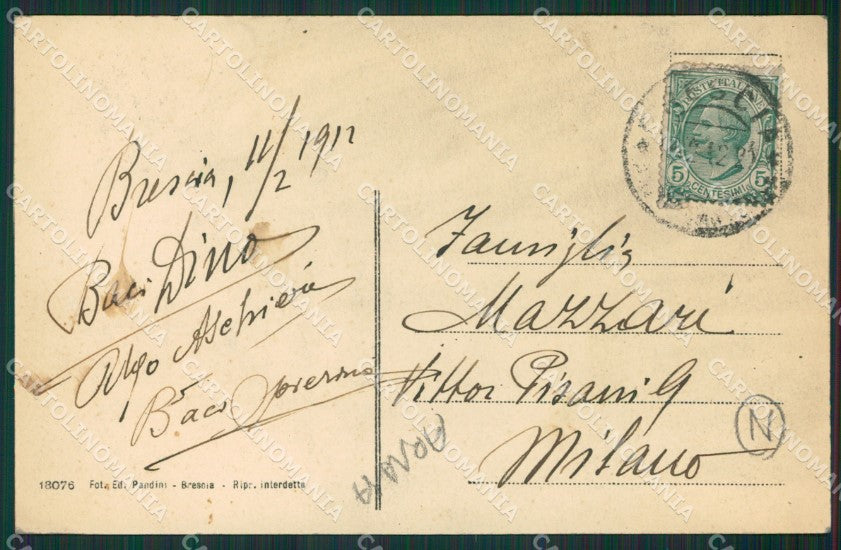 Brescia, 11/2 1912
Baci Dino
Aschieri
Baci
18076 Fot. Ed. Pandini - Brescia - Ripr. interdetta
POSTE ITALIANE
5 CENTESIMI 5
Famiglia
Mazzari
Vittor Pisani 9
Milano
N
CARTOLINOMANIA